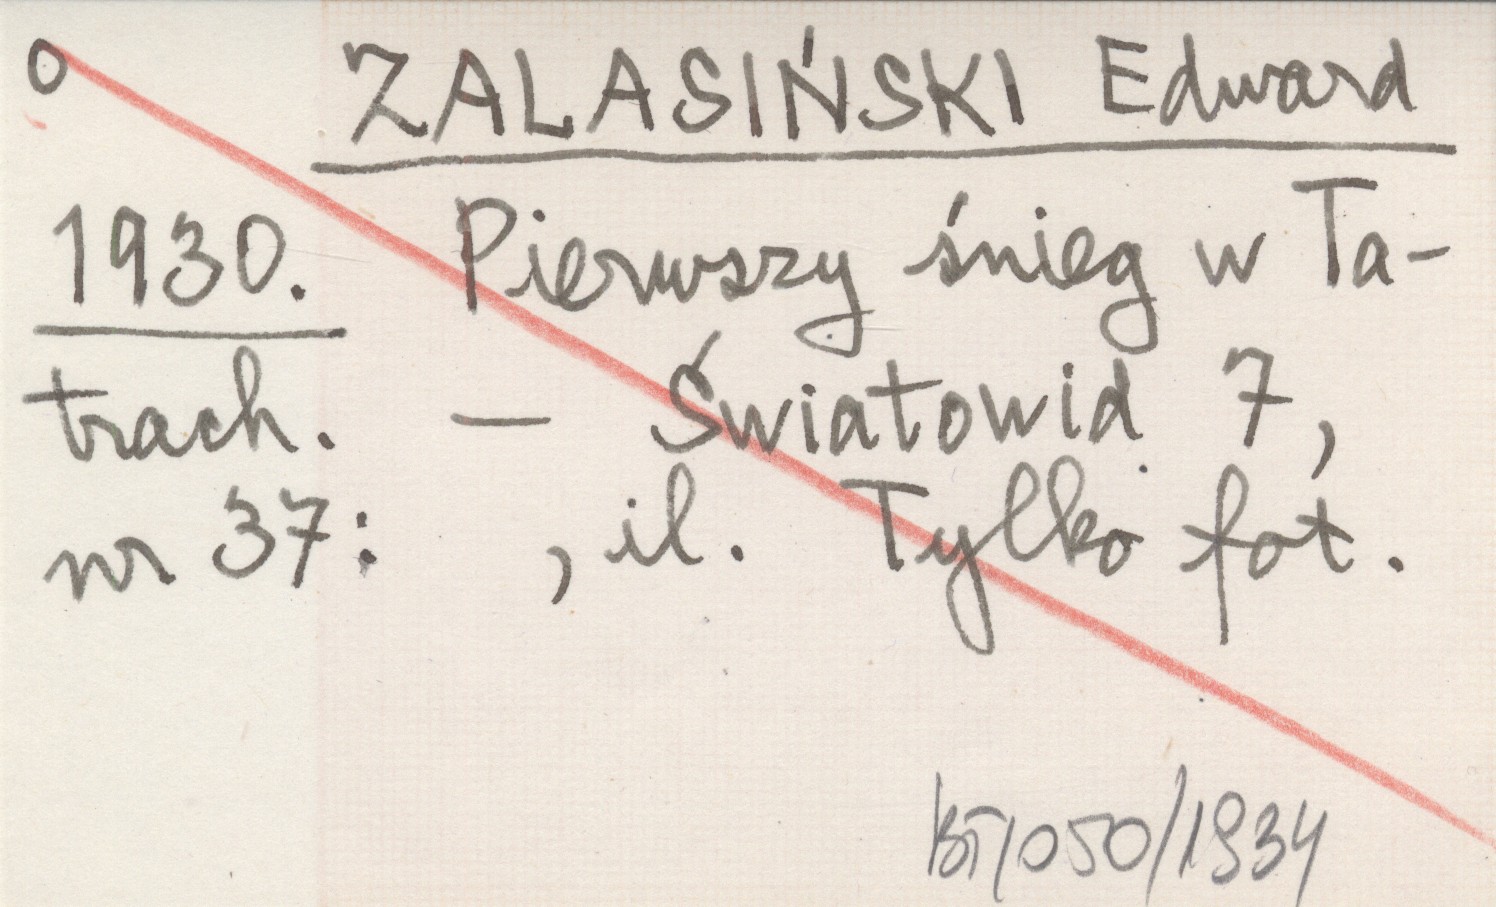 O ZALASIŃSKI Edward
1930. Pierwszy śnieg w Ta-
trach. — Światowid 7,
nr 37: , il. Tylko fot.
BT/050/1934